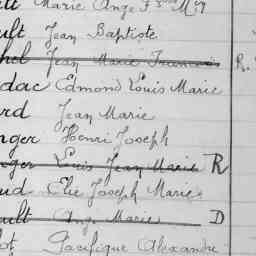 Marie Ange
ult Jean Baptiste
hel Jean Marie Francois R.
dac Edmond Louis Marie
ard Jean Marie
nger Henri Joseph
nger Louis Jean Marie R
ud Elie Joseph Marie
ault Ange Marie D
lot Pacifique Alexandre